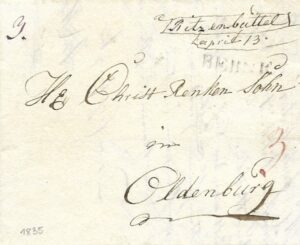 3.
Ritzenbüttel
april 13.
HE Christ Renken Sohn
3
in
Oldenburg
1835